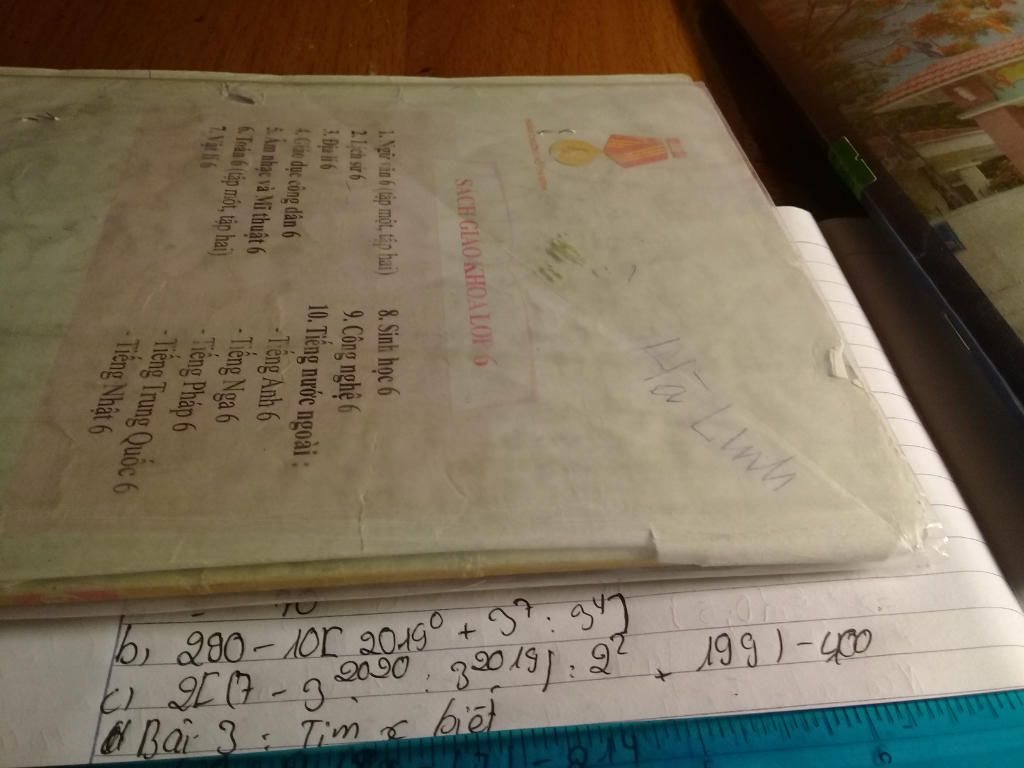 SÁCH GIÁO KHOA LỚP 6
1. Ngữ văn 6 (tập một, tập hai)
2. Lịch sử 6
3. Địa lí 6
4. Giáo dục công dân 6
5. Âm nhạc và Mĩ thuật 6
6. Toán 6 (tập một, tập hai)
7. Vật lí 6
8. Sinh học 6
9. Công nghệ 6
10. Tiếng nước ngoài :
- Tiếng Anh 6
- Tiếng Nga 6
- Tiếng Pháp 6
- Tiếng Trung Quốc 6
- Tiếng Nhật 6
Hà Linh
b, 290 - 10[ 2019⁰ + 3⁷ : 3⁴]
c) 2[ (7 - 3²⁰²⁰ : 3²⁰¹⁹) : 2² + 199 ) - 400
Bài 3 : Tìm x biết